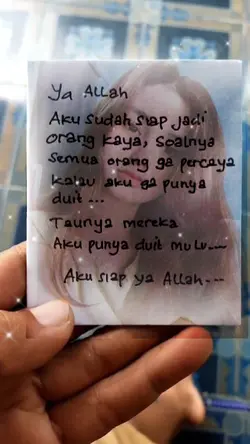 Ya Allah
Aku sudah siap jadi
orang kaya, soalnya
semua orang ga percaya
kalau aku ga punya
duit ...
Taunya mereka
Aku punya duit mulu....
Aku siap ya Allah....